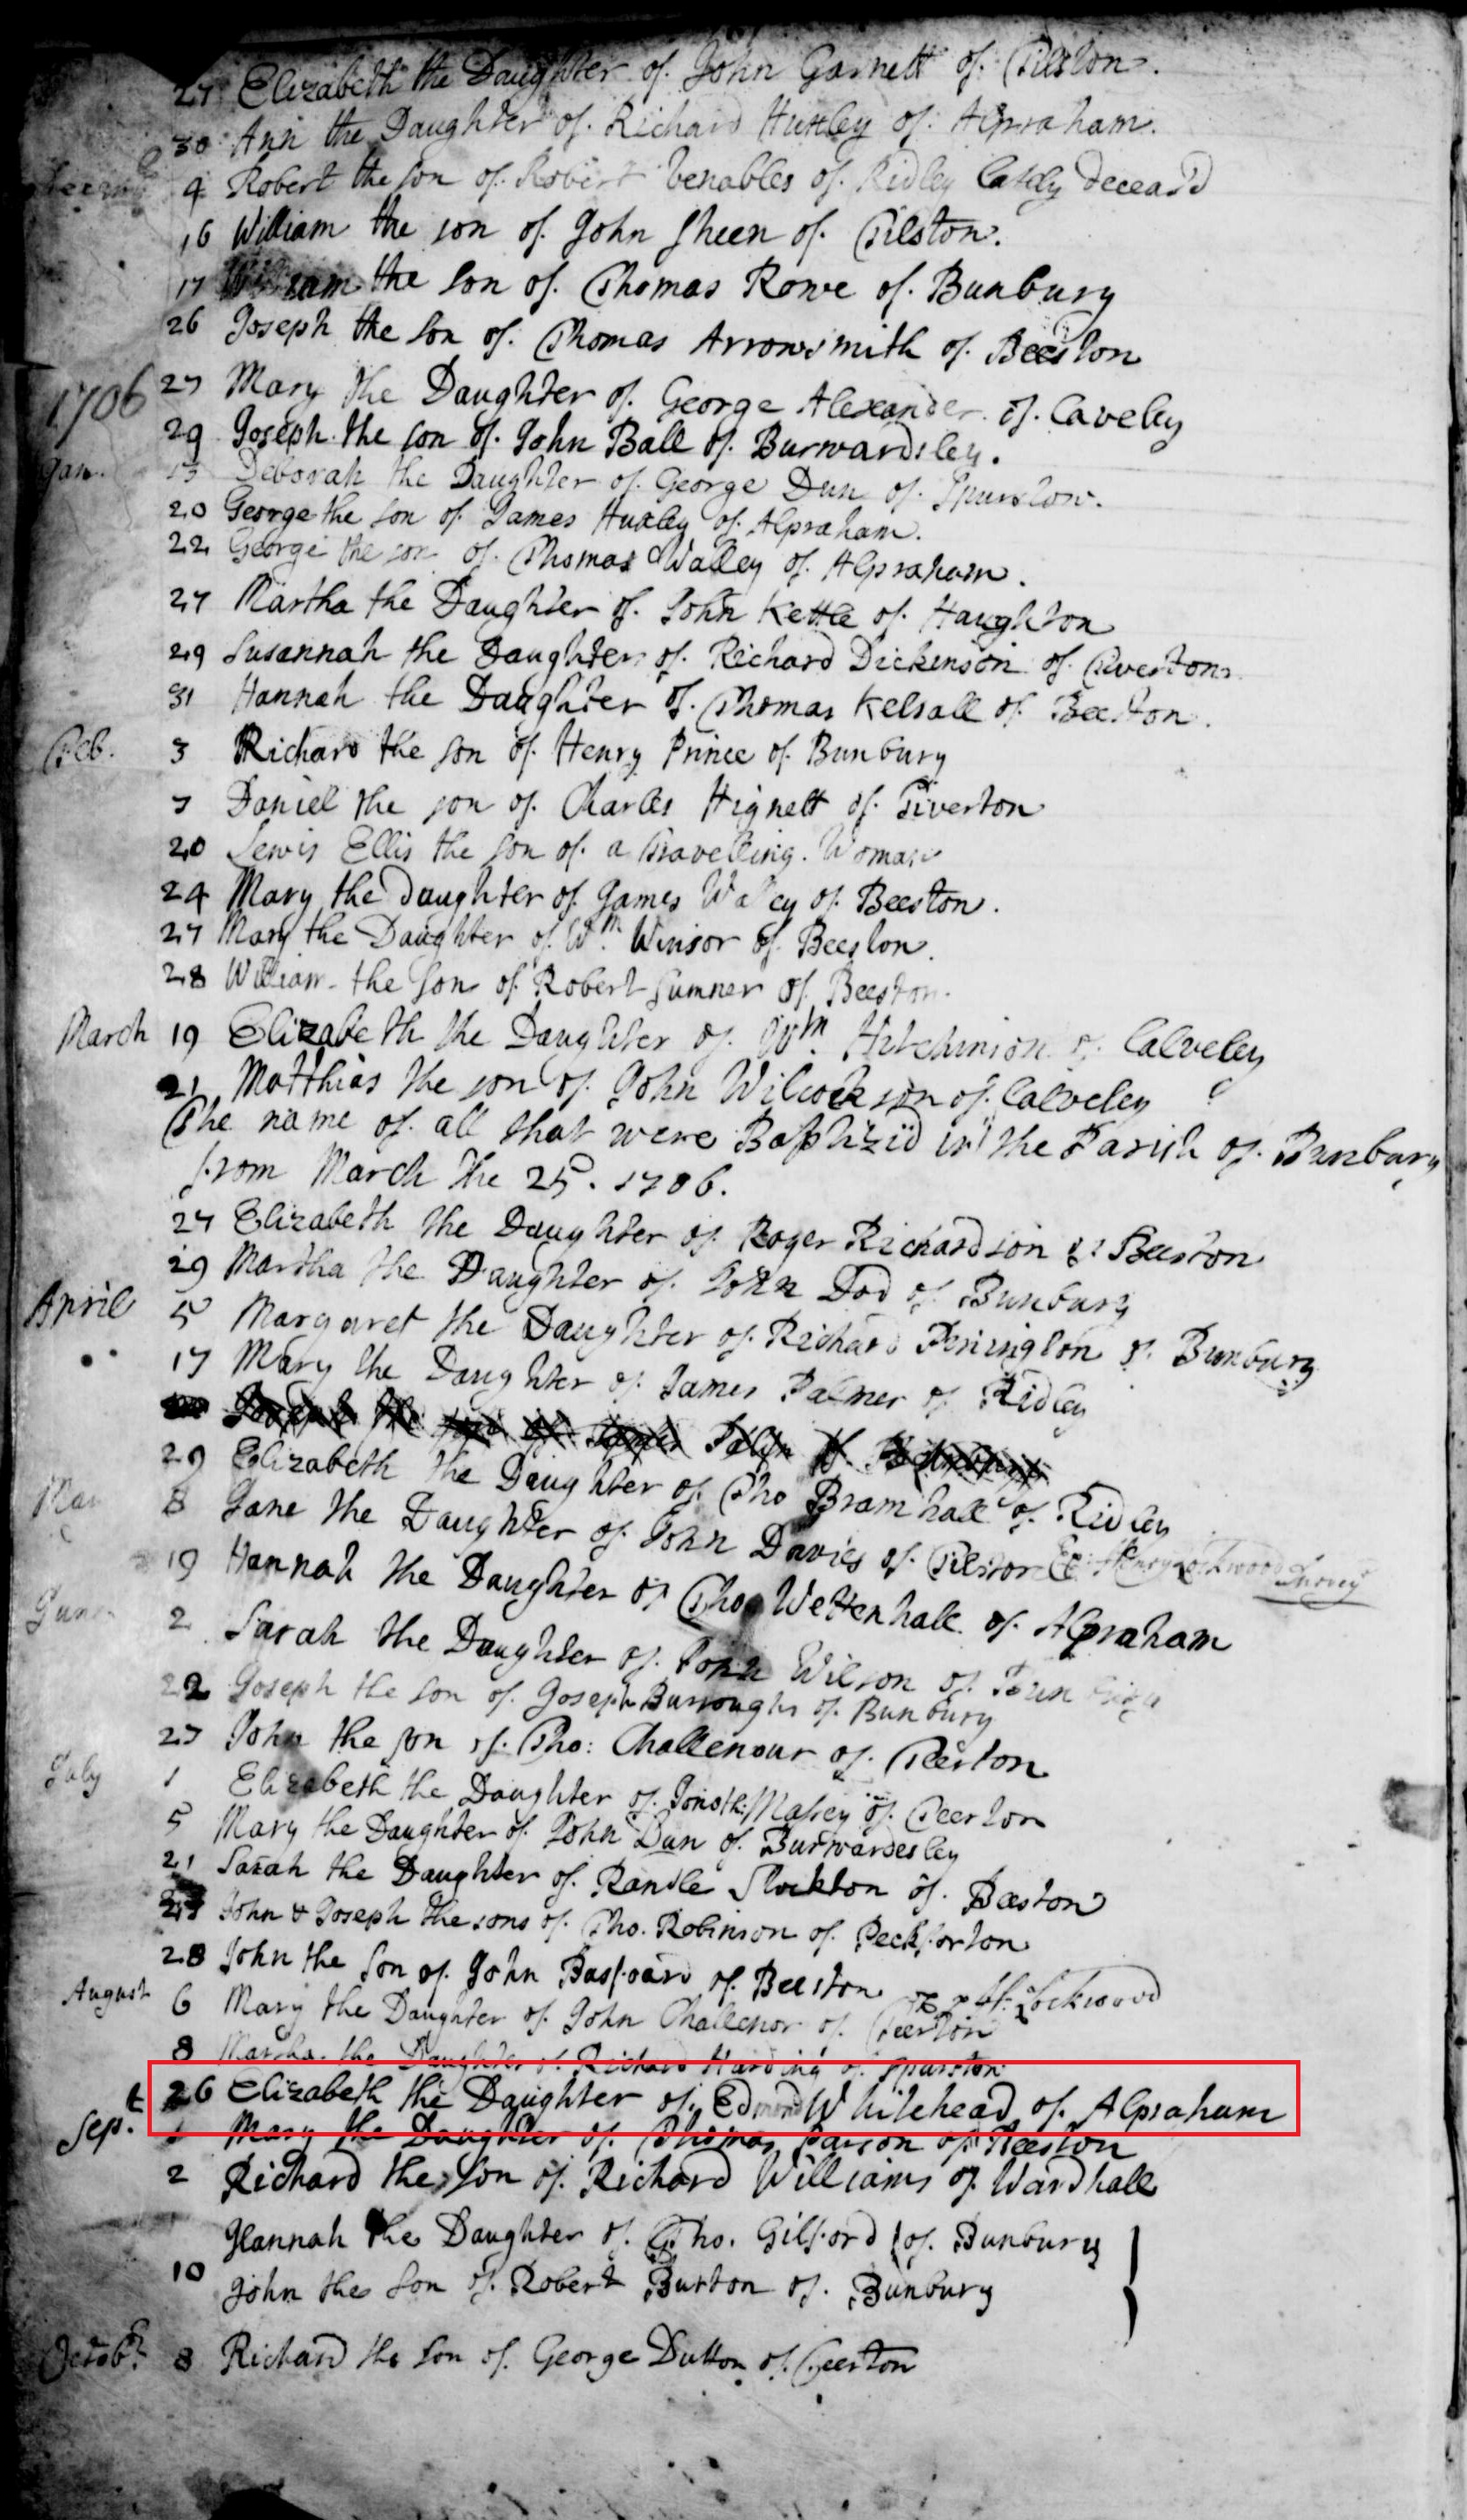 27 Elizabeth the Daughter of John Garnett of Tilston.
30 Ann the Daughter of Richard Huxley of Alpraham.
4 Robert the son of Robert Venables of Ridley Lately deceas'd
16 William the son of John Sheen of Tilston.
17 William the son of Thomas Rowe of Bunbury
26 Joseph the son of Thomas Arrowsmith of Beeston
1706 27 Mary the Daughter of George Alexander of Caveley
29 Joseph the son of John Ball of Burwardsley.
Jan. 13 Deborah the Daughter of George Dun of Spurstow.
20 George the son of James Huxley of Alpraham.
22 George the son of Thomas Walley of Alpraham.
27 Martha the Daughter of John Kettle of Haughton
29 Susannah the Daughter of Richard Dickenson of Tiverton
31 Hannah the Daughter of Thomas Kelsall of Beeston.
Feb. 3 Richard the son of Henry Prince of Bunbury
7 Daniel the son of Charles Hignett of Tiverton
20 Lewis Ellis the son of a Travelling Woman
24 Mary the daughter of James Walley of Beeston.
27 Mary the Daughter of Wm. Winsor of Beeston.
28 William the son of Robert Sumner of Beeston.
March 19 Elizabeth the Daughter of Wm. Hitchinson of Calveley
21 Matthias the son of John Wilcockson of Calveley
The name of all that were Baptizid in the Parish of Bunbury
from March the 25. 1706.
27 Elizabeth the Daughter of Roger Richardson of Beeston
29 Martha the Daughter of John Dod of Bunbury
April 5 Margaret the Daughter of Richard Penington of Bunbury
17 Mary the Daughter of James Palmer of Ridley
Joseph the son of James of
29 Elizabeth the Daughter of Tho Bramhall of Ridley
8 Jane the Daughter of John Davies of Tilston
19 Hannah the Daughter of Tho Wettenhall of Alpraham
June 2 Sarah the Daughter of John Wilson of Bunbury
22 Joseph the son of Joseph Burroughs of Bunbury
27 John the son of Tho: Challenour of Teerton
July 1 Elizabeth the Daughter of Jonoth: Massey of Teerton
5 Mary the Daughter of John Dun of Burwardesley
21 Sarah the Daughter of Randle Stockton of Beeston
John & Joseph the sons of Tho. Robinson of Peckforton
28 John the son of John Basford of Beeston
August 6 Mary the Daughter of John Challenor of Teerton H. Lockwood
8 Martha the Daughter of Richard Harding of Spurstow
26 Elizabeth the Daughter of Edmond Whitehead of Alpraham
Sept. 1 Mary the Daughter of Thomas Parson of Beeston
2 Richard the son of Richard Williams of Wardhall
Hannah the Daughter of Tho. Gilford of Bunbury
10 John the son of Robert Burton of Bunbury
Octobr. 8 Richard the son of George Dutton of Teerton